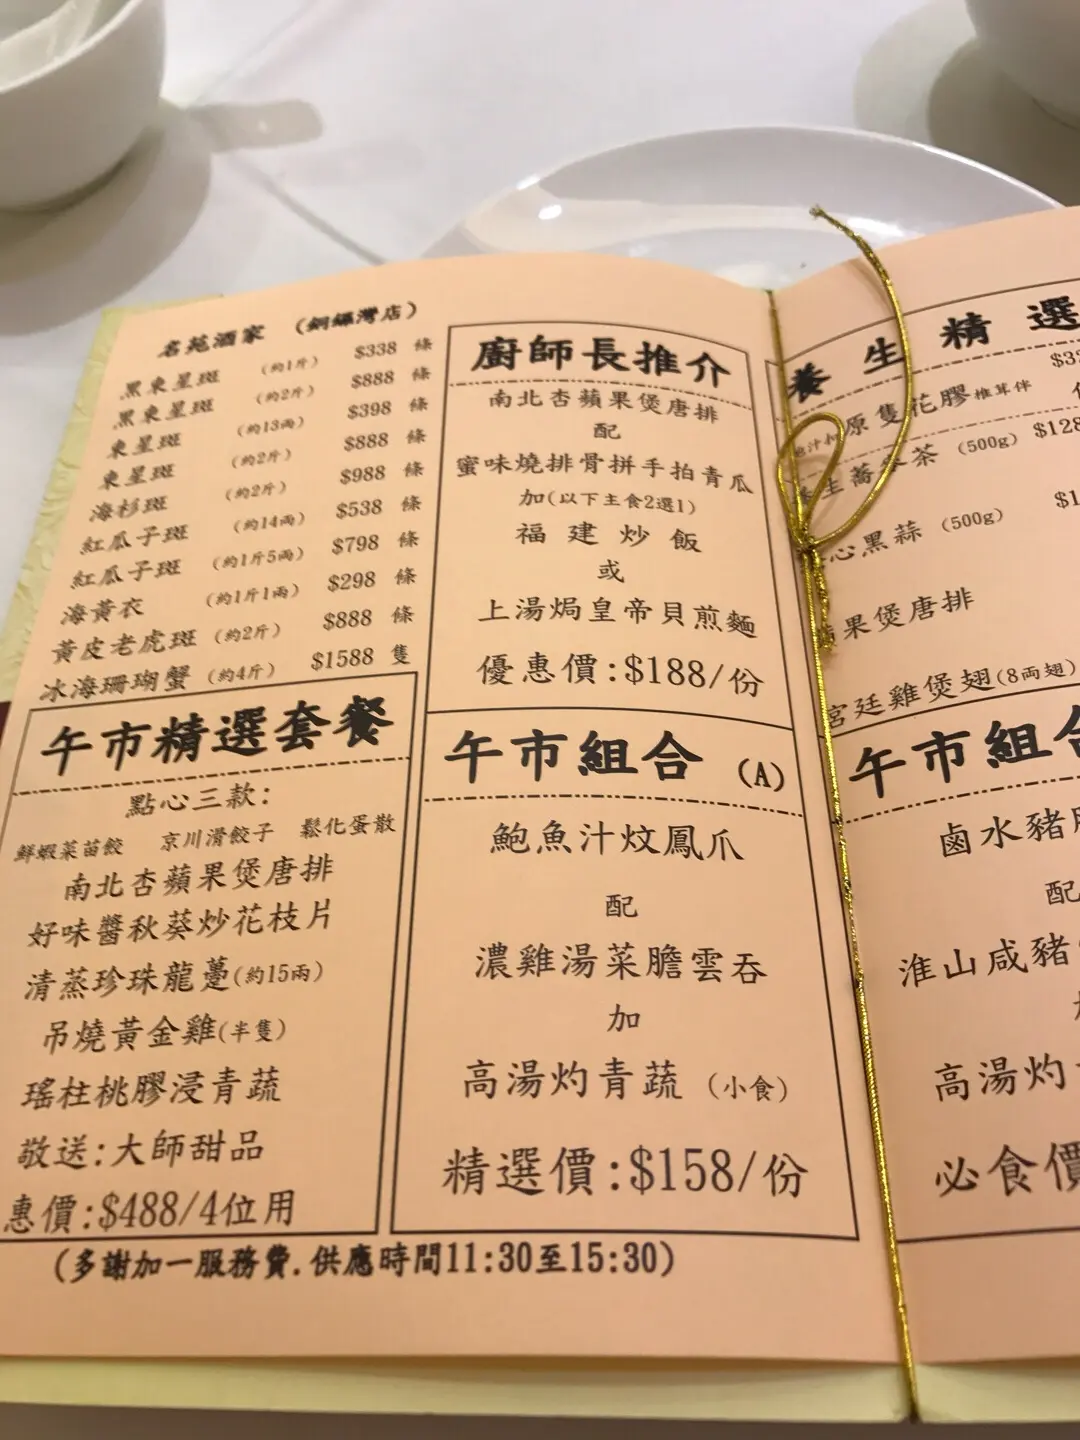 名苑酒家 (銅鑼灣店)
黑東星斑 (約1斤) $338 條
黑東星斑 (約2斤) $888 條
東星斑 (約13両) $398 條
東星斑 (約2斤) $888 條
海杉斑 (約2斤) $988 條
紅瓜子斑 (約14両) $538 條
紅瓜子斑 (約1斤5両) $798 條
海黃衣 (約1斤1両) $298 條
黃皮老虎斑 (約2斤) $888 條
冰海珊瑚蟹 (約4斤) $1588 隻
午市精選套餐
點心三款:
鮮蝦菜苗餃 京川滑餃子 鬆化蛋散
南北杏蘋果煲唐排
好味醬秋葵炒花枝片
清蒸珍珠龍躉(約15両)
吊燒黃金雞(半隻)
瑤柱桃膠浸青蔬
敬送:大師甜品
惠價:$488/4位用
廚師長推介
南北杏蘋果煲唐排
配
蜜味燒排骨拼手拍青瓜
加(以下主食2選1)
福建炒飯
或
上湯焗皇帝貝煎麵
優惠價:$188/份
午市組合 (A)
鮑魚汁炆鳳爪
配
濃雞湯菜膽雲吞
加
高湯灼青蔬 (小食)
精選價:$158/份
(多謝加一服務費.供應時間11:30至15:30)
養生精選
原隻花膠推茸伴
茶 (500g) $128
心黑蒜 (500g) $1
果煲唐排
宮廷雞煲翅(8両翅)
午市組合
鹵水豬
配
淮山咸豬
高湯灼
必食價